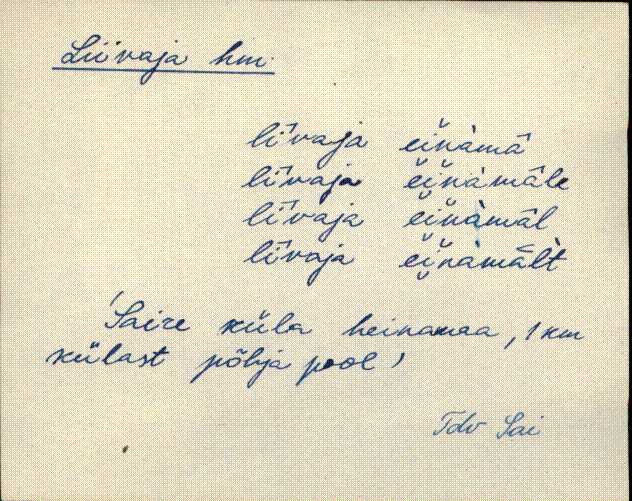 Liivaja hm.
līvaja eĭnàmā
līvaja eĭnàmāle
līvaja eĭnàmāl
līvaja eĭnàmālt
'Saire küla heinamaa, 1 km
külast põhja pool'
Tdv Sai